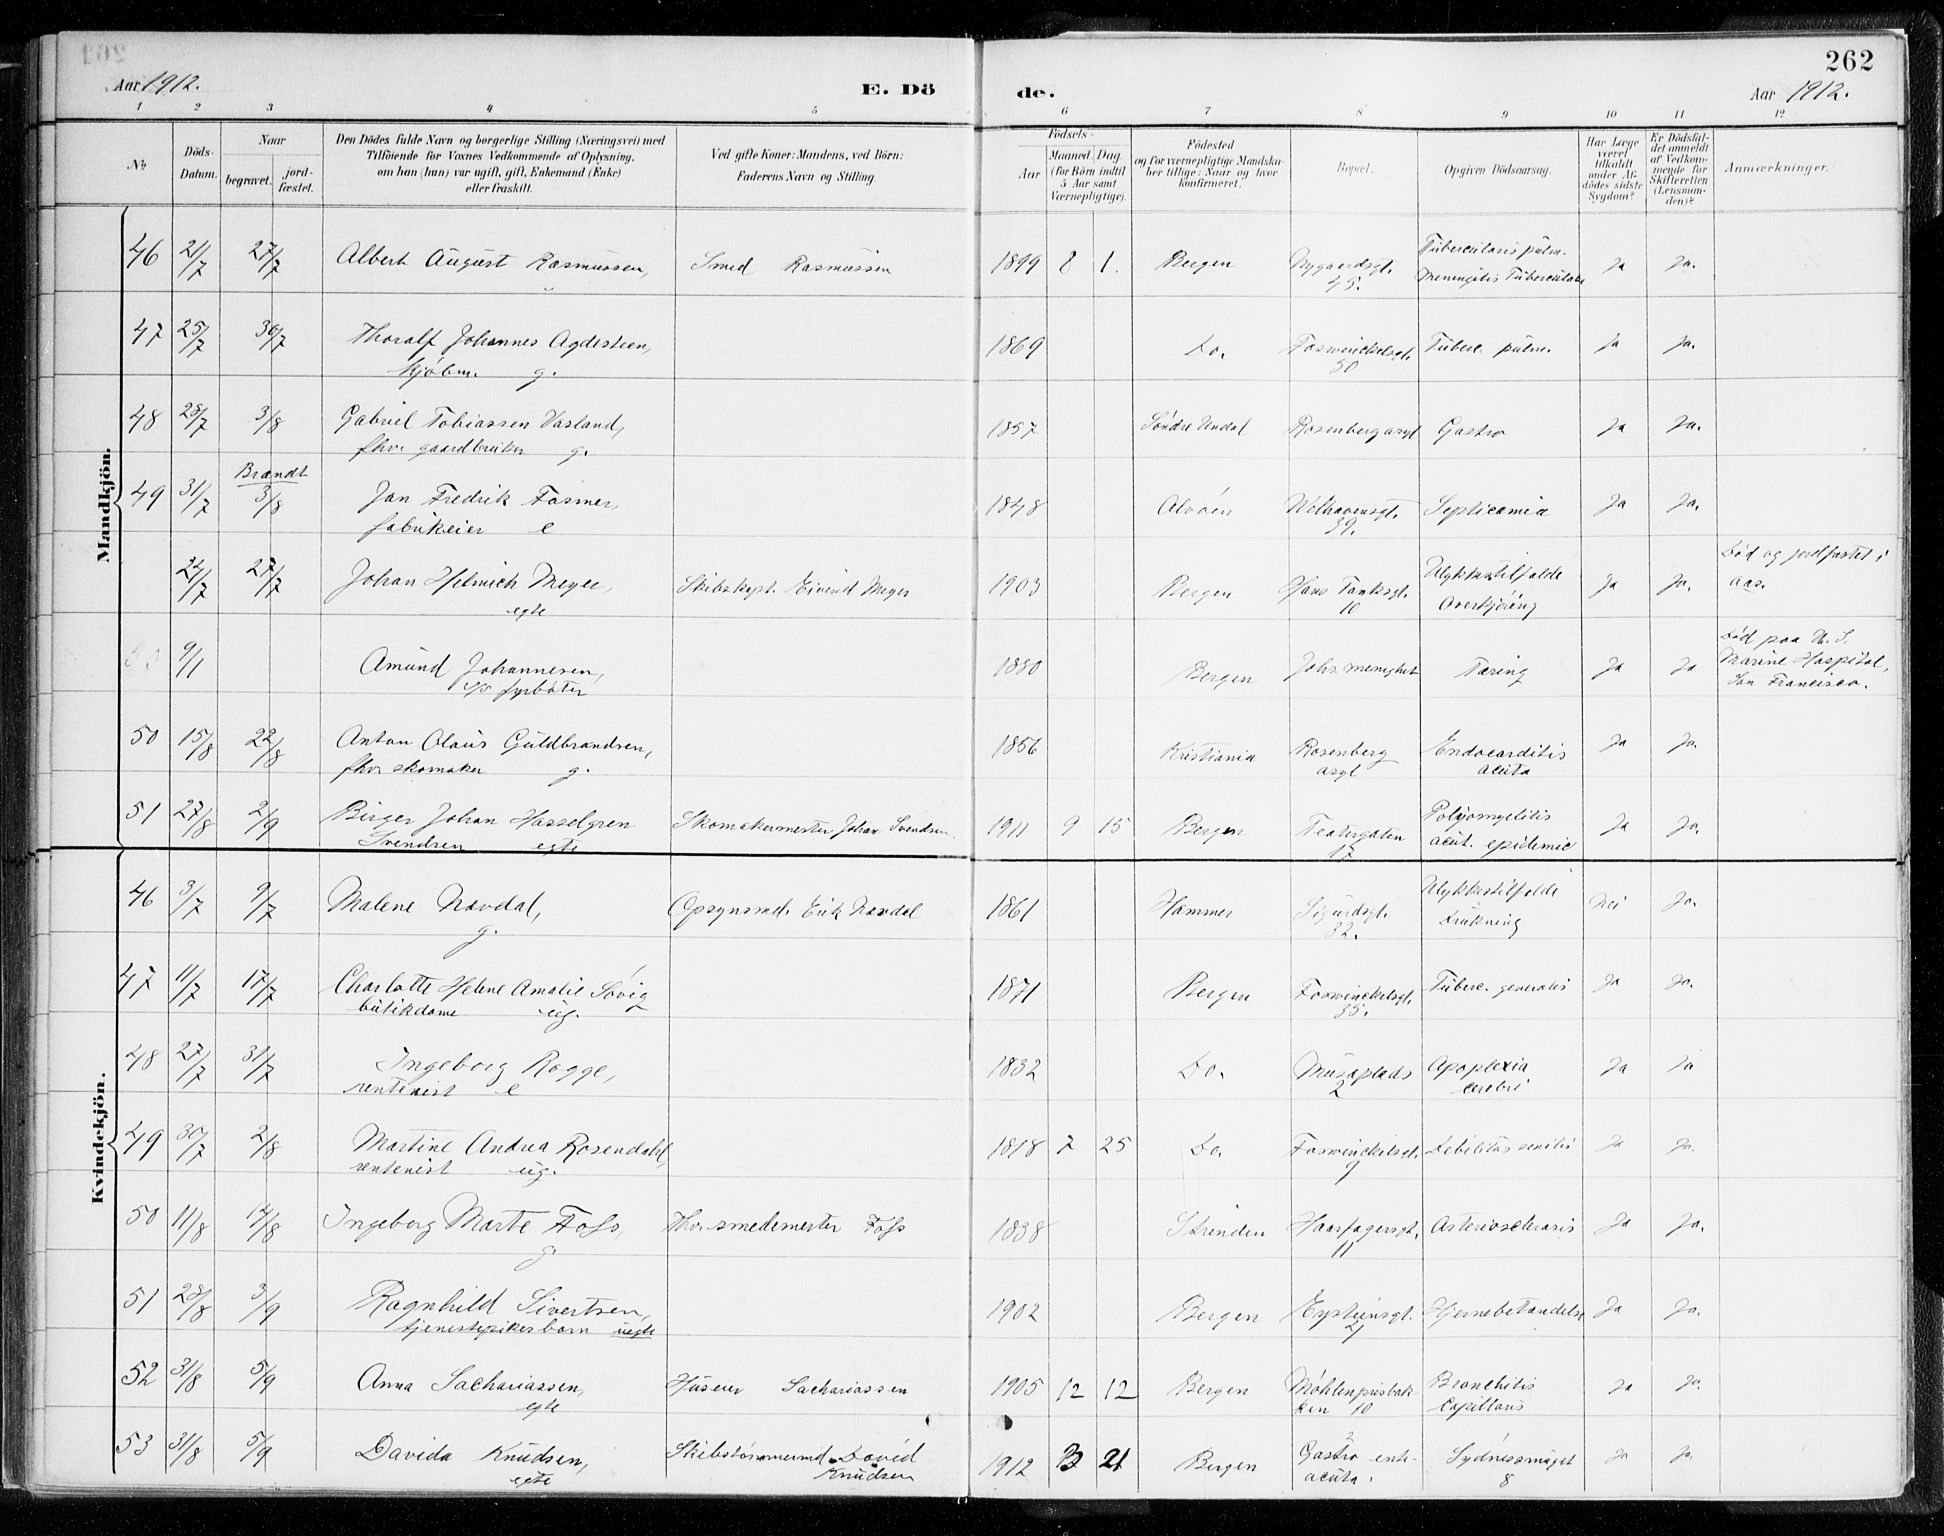 262
Aar 1912.
E. Dö
de.
Aar 1912.
1 2 3 4 5 6 7 8 9 10 11 12
№
Döds-Datum.
Naar
begravet.
jord-fæstet.
Den Dödes fulde Navn og borgerlige Stilling (Næringsvei) med
Tilföiende for Voxnes Vedkommende af Oplysning,
om han (hun) var ugift, gift, Enkemand (Enke)
eller fraskilt.
Ved gifte Koner: Mandens, ved Börn:
Faderens Navn og Stilling.
Födsels-
Aar
Maaned. Dag.
(for Börn indtil
5 Aar samt
Værnepligtige).
Födested
og for værnepligtige Mandska-
ber tillige: Naar og hvor
konfirmeret.
Bopæl.
Opgiven Dödsaarsag.
Har Læge
været
tilkaldt
under Af-
dödes sidste
Sygdom?
Er Dödsfal-
det anmeldt
af Vedkom-
mende for
Skifteretten
(Lensman-
den)?
Anmærkninger.
Mandkjön.
46 21/7 27/7 Albert August Rasmussen, Smed Rasmussen 1899 8 1. Bergen Nygaardsgt. 45. Tuberculosis pulm. Meningitis Tuberculosa Ja Ja.
47 25/7 30/7 Thoralf Johannes Agdesteen, kjøbm. g. 1869 Do. Foswinckelsgt. 50 Tuberc. pulm. Ja Ja.
48 28/7 3/8 Gabriel Tobiassen Vasland, fhv. gaardbruker g. 1857 Søndre Undal Rosenberg asyl Gastro Ja Ja.
Brændt
49 31/7 3/8 Jan Fredrik Fasmer, fabrikeier e 1848 Alvøen Welhavensgt. 39. Septicæmia Ja Ja.
24/7 27/7 Johan Helmich Meyer, egte Skibskapt. Eivind Meyer 1903 Bergen Hans Tanksgt. 10 Ulykkestilfælde Overkjøring Ja Ja. Død og jordfæstet i Aas.
9/1 Amund Johannesen, fyrbøter 1880 Bergen Johs. menighet Tæring Ja Ja Død paa U. S. Marine Hospital, San Francisco.
50 15/8 22/8 Anton Olaus Guldbrandsen, fhv. skomaker g. 1856 Kristiania Rosenberg asyl Endocarditis acuta Ja Ja.
51 27/8 2/9 Birger Johan Hasselgren Svendsen egte Skomakermester Johan Svendsen. 1911 9 15 Bergen Teatergaten 17 Polyomyelitis acut. epidemic Ja Ja.
Kvindekjön.
46 3/7 9/7 Malene Navdal, g. Opsynsmd. Erik Navdal 1861 Hammer Sigurdsgt. 32. Ulykkestilfælde Drukning Nei Ja.
47 11/7 17/7 Charlotte Helene Amalie Søvig butikdame ug. 1871 Bergen Foswinckelsgt. 35. Tuberc. generalis Ja Ja.
48 27/7 31/7 Ingeborg Rogge, rentenist e 1832 Do. Musæplads 2 Apoplexia cerebri Ja Ja
49 30/7 2/8 Martine Andrea Rosendahl, rentenist ug. 1818 7 25 Do. Foswinckelsgt. 9 Debilitas senilis Ja Ja.
50 11/8 17/8 Ingeborg Marte Foss, g. Fhv. smedemester Foss 1838 Strinden Haarfagersgt. 11 Arteriosclerosis Ja Ja.
51 28/8 3/9 Ragnhild Sivertsen, tjenestepikesbarn uegte 1902 Bergen Eysteinsgt. Hjernebetændelse Ja Ja.
52 31/8 5/9 Anna Sachariassen, egte Huseier Sachariassen 1905 12 12 Bergen Møhlenprisbakken 10 Bronchitis capillaris Ja Ja.
53 31/8 5/9 Davida Knudsen, egte Skibstømmermd. David Knudsen 1912 3 21 Bergen Gastro ent- acuta. Sydnessmuget 8 Ja Ja.